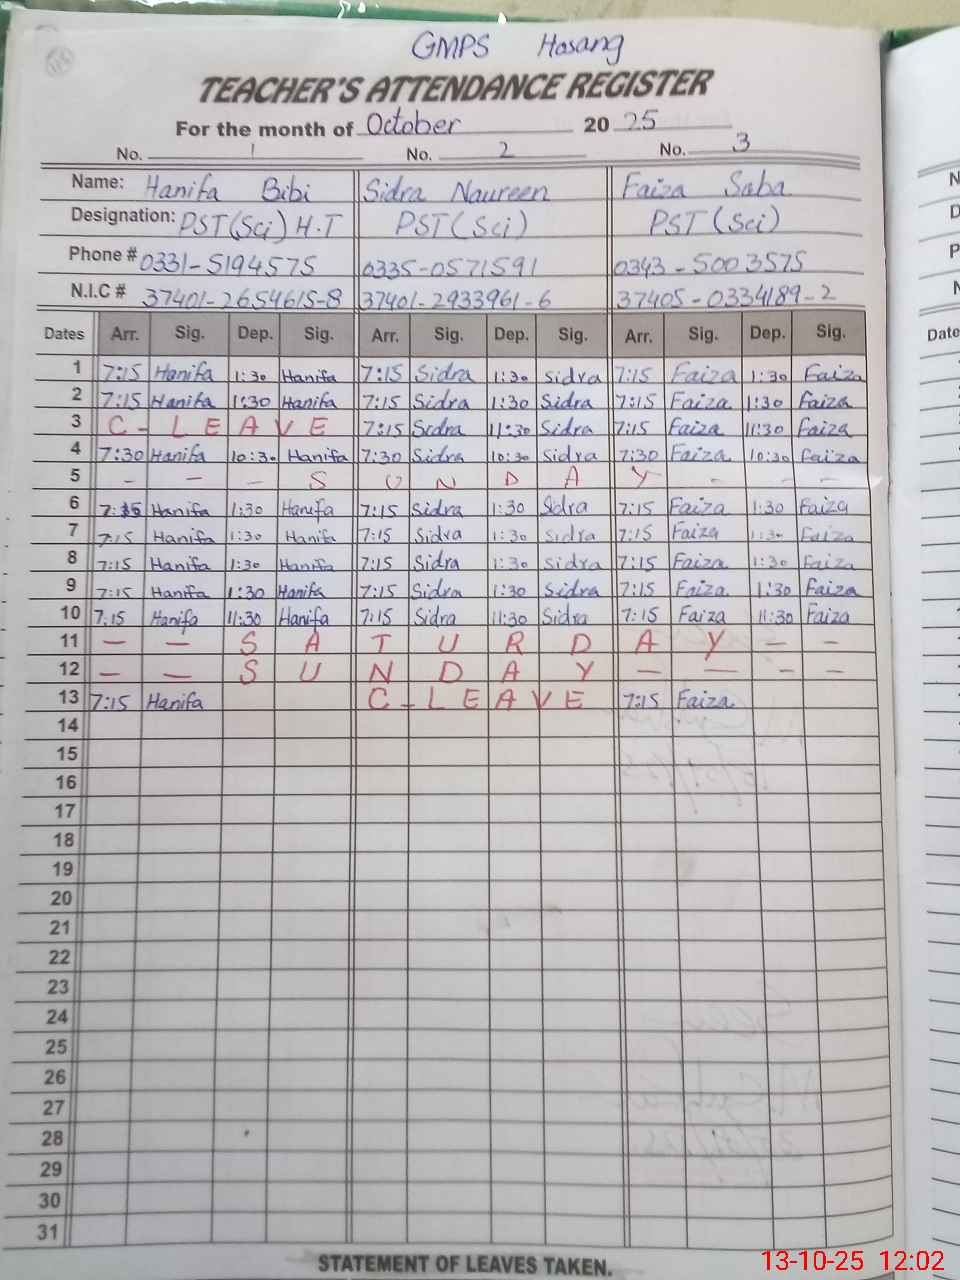 GMPS Hasang
TEACHER'S ATTENDANCE REGISTER
For the month of October 2025
No. 1 No. 2 No. 3
Name: Hanifa Bibi Sidra Naureen Faiza Saba
Designation: PST(Sci) H.T PST(Sci) PST(Sci)
Phone # 0331-5194575 0335-0571591 0343-5003575
N.I.C # 37401-2654615-8 37401-2933961-6 37405-0334189-2
Dates Arr. Sig. Dep. Sig. Arr. Sig. Dep. Sig. Arr. Sig. Dep. Sig.
1 7:15 Hanifa 1:30 Hanifa 7:15 Sidra 1:30 Sidra 7:15 Faiza 1:30 Faiza
2 7:15 Hanifa 1:30 Hanifa 7:15 Sidra 1:30 Sidra 7:15 Faiza 1:30 Faiza
3 C-LEAVE 7:15 Sidra 11:30 Sidra 7:15 Faiza 11:30 Faiza
4 7:30 Hanifa 10:30 Hanifa 7:30 Sidra 10:30 Sidra 7:30 Faiza 10:30 Faiza
5 - - - S U N D A Y - - -
6 7:15 Hanifa 1:30 Hanifa 7:15 Sidra 1:30 Sidra 7:15 Faiza 1:30 Faiza
7 7:15 Hanifa 1:30 Hanifa 7:15 Sidra 1:30 Sidra 7:15 Faiza 1:30 Faiza
8 7:15 Hanifa 1:30 Hanifa 7:15 Sidra 1:30 Sidra 7:15 Faiza 1:30 Faiza
9 7:15 Hanifa 1:30 Hanifa 7:15 Sidra 1:30 Sidra 7:15 Faiza 1:30 Faiza
10 7:15 Hanifa 11:30 Hanifa 7:15 Sidra 11:30 Sidra 7:15 Faiza 11:30 Faiza
11 - - S A T U R D A Y - -
12 - - S U N D A Y - - - -
13 7:15 Hanifa C-LEAVE 7:15 Faiza
14
15
16
17
18
19
20
21
22
23
24
25
26
27
28
29
30
31
STATEMENT OF LEAVES TAKEN.
13-10-25 12:02
Date